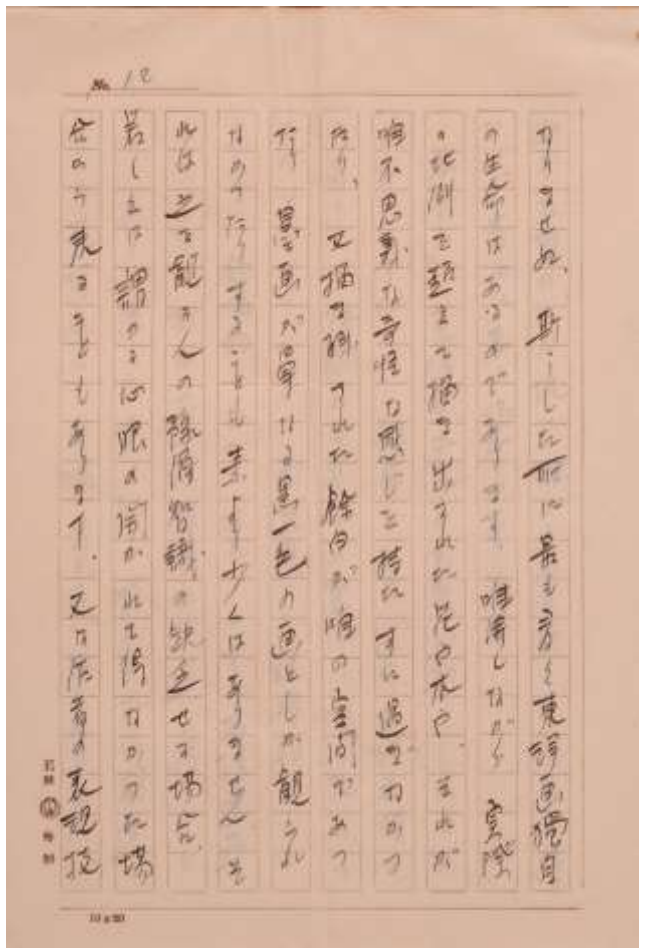 No. 12
なりませぬ、斯うした所に最も多く東洋画獨自
の生命はあるのであります。唯併しながら実際
の比例を超えて描き出された花や木や、それが
唯不思議な奇怪な感じを持たすに過ぎなかつ
たり、又描き残された餘白が唯の空間であつ
たり、墨画が単なる黒一色の画としか観られ
なかつたりすることも素より少くはありません。そ
れは之を観る人の 智識の缺乏せる場合、
若しくは謂ゆる心眼の開かれて得なかつた場
合のみ来ることもあります。又は作者の表現技
10 x 20